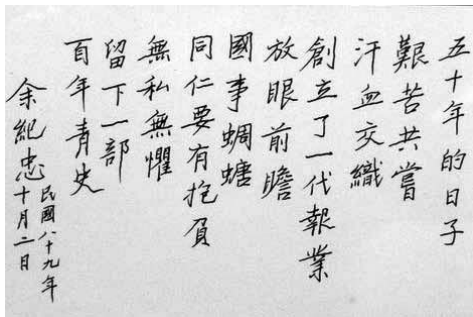 五十年的日子
艱苦共嘗
汗血交織
創立了一代報業
放眼前瞻
國事蜩螗
同仁要有抱負
無私無懼
留下一部
百年青史
余紀忠
民國八十九年
十月二日